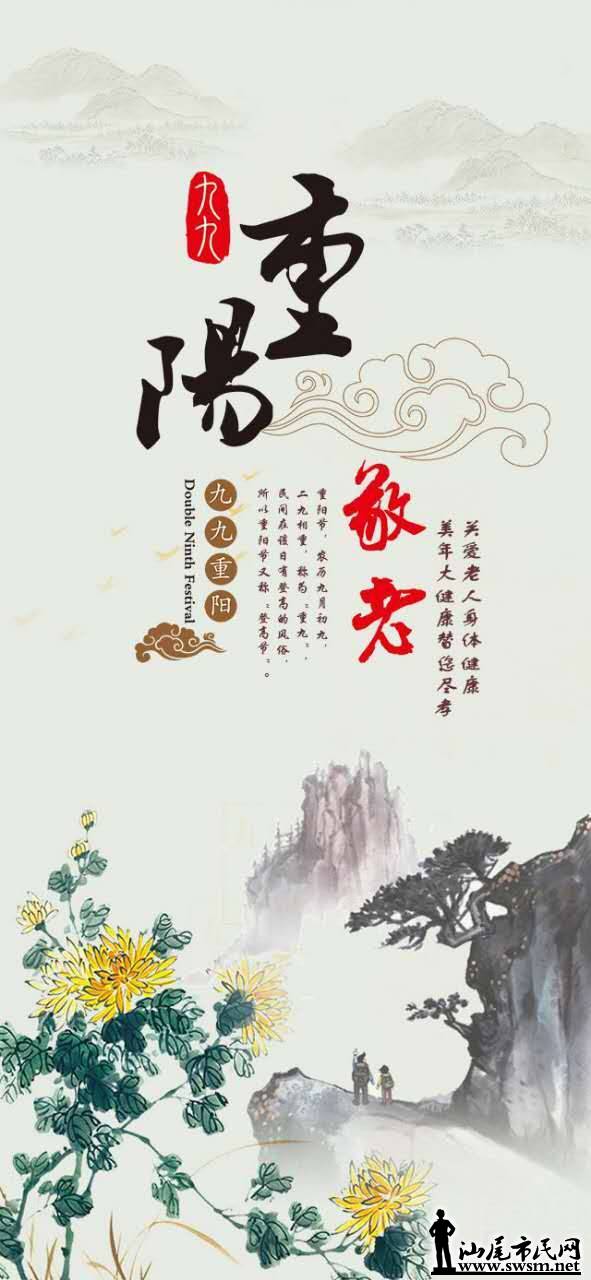 九九
重
陽
敬老
关爱老人身体健康
美年大健康替您尽孝
重阳节，农历九月初九，
二九相重，称为“重九”，
民间在该日有登高的风俗，
所以重阳节又称“登高节”。
九九重阳
Double Ninth Festival
汕尾市民网
www.swsm.net